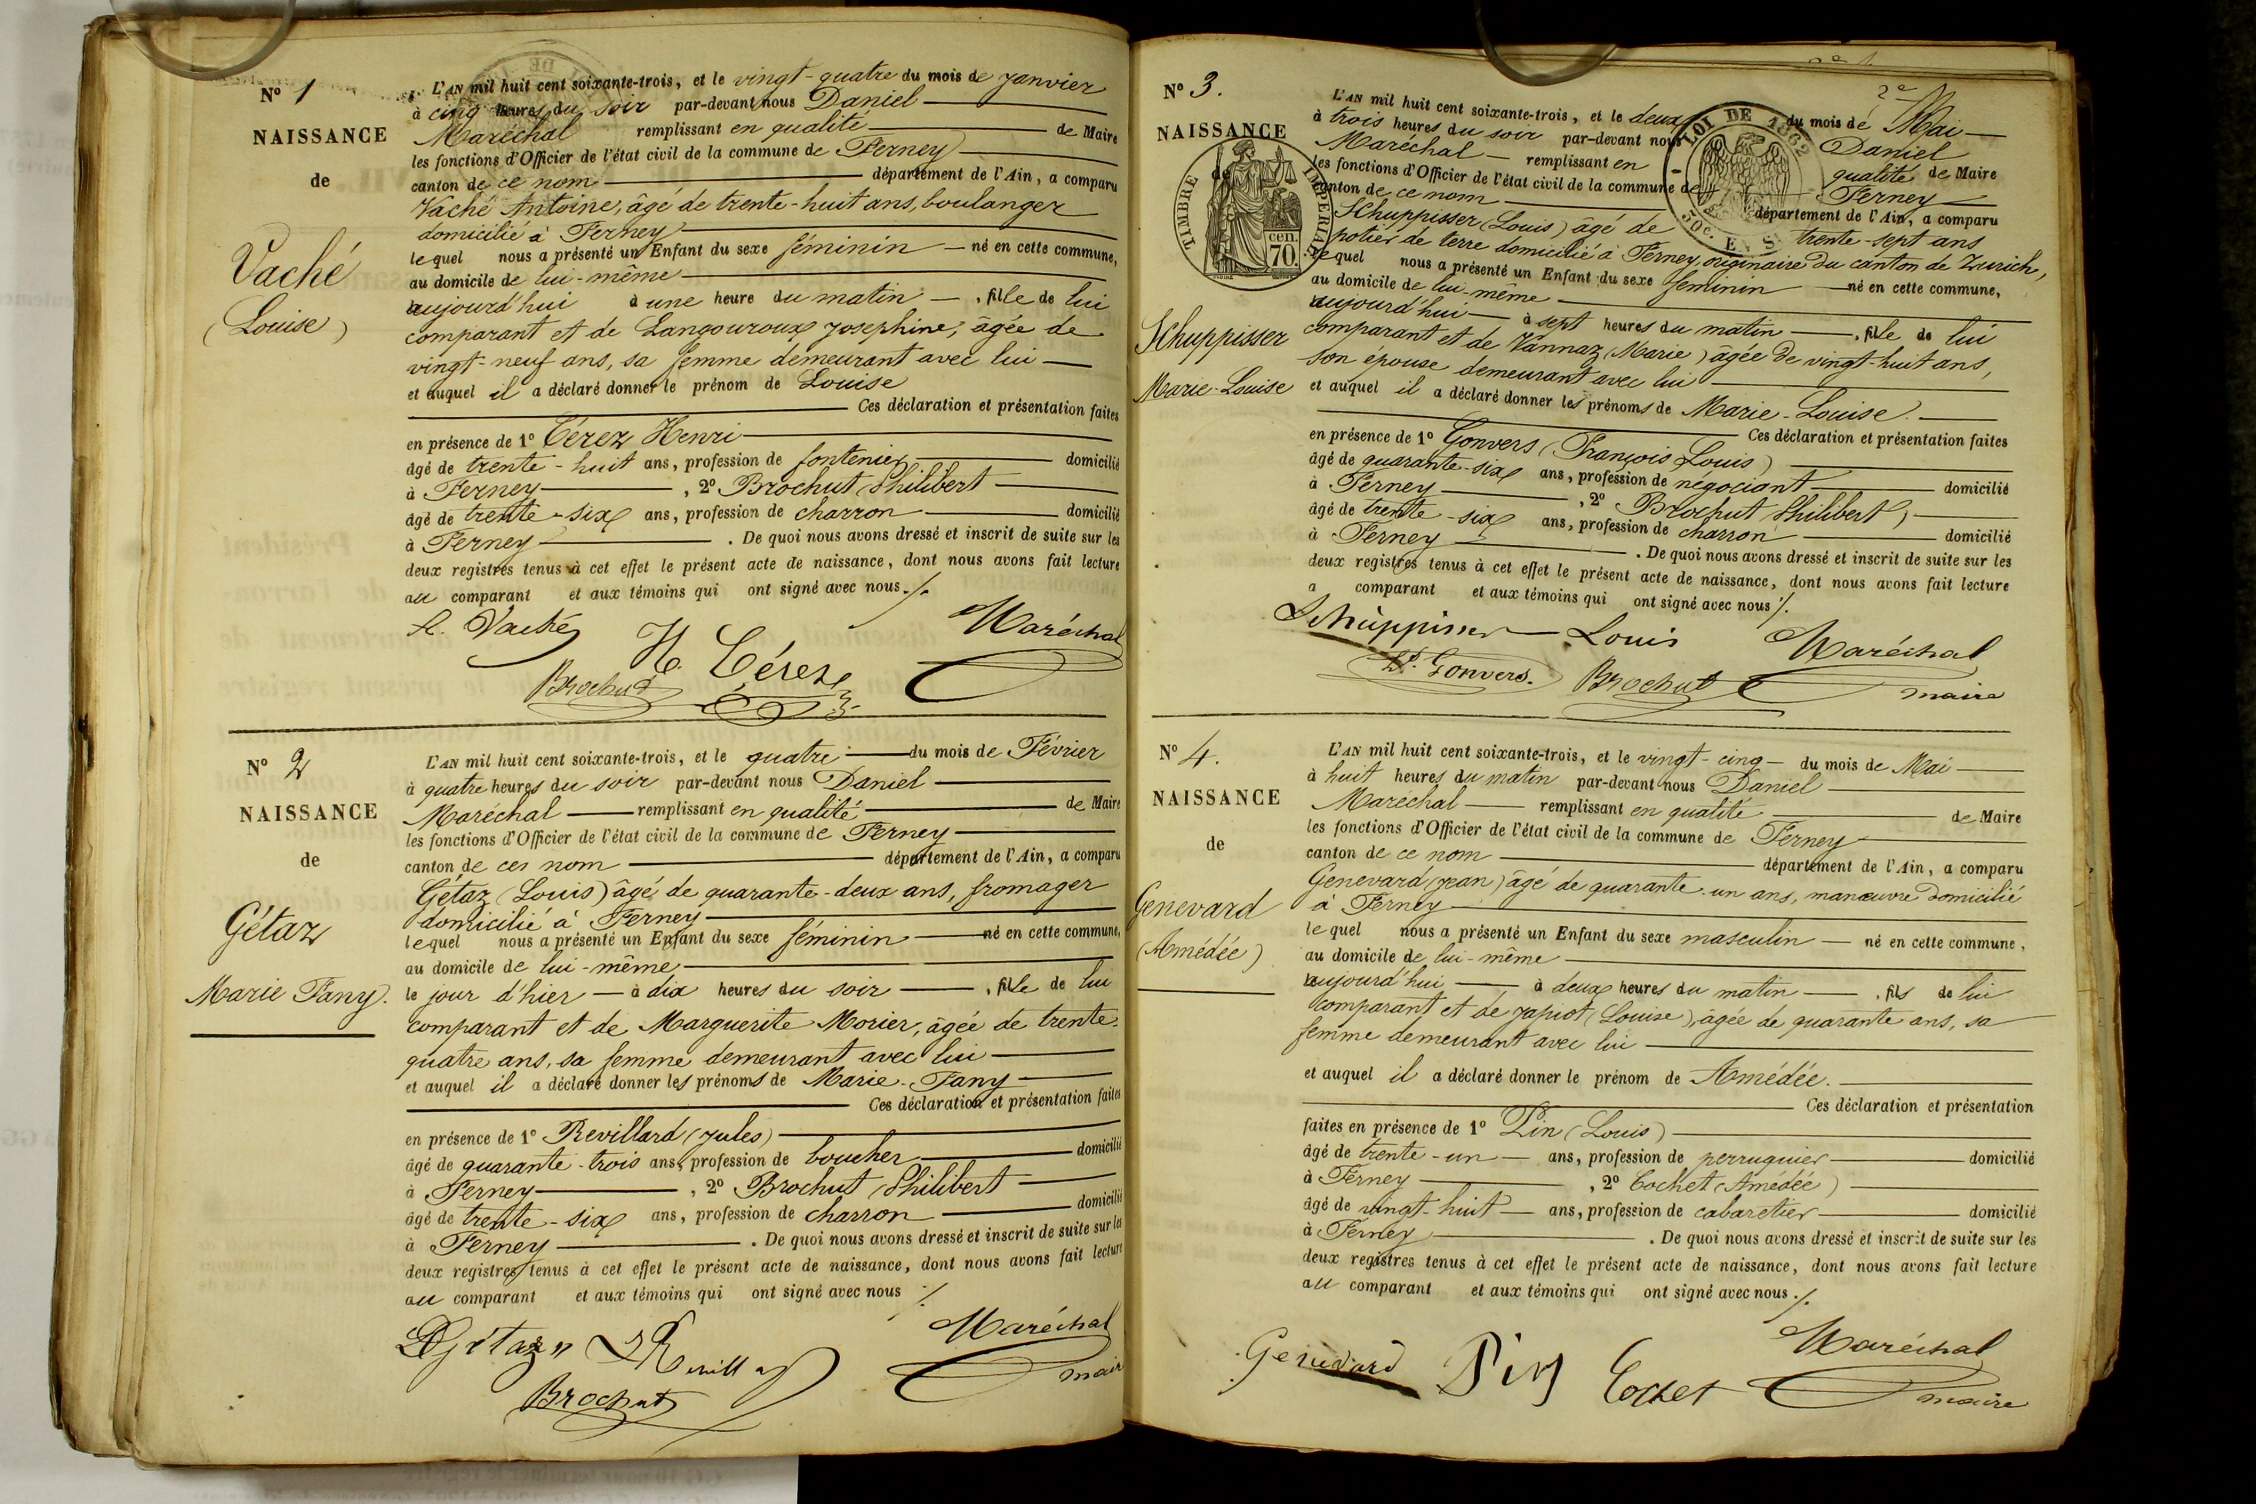 N° 1
NAISSANCE
de
Vaché
(Louise)
L'AN mil huit cent soixante-trois, et le vingt-quatre du mois de janvier
à cinq heures du soir par-devant nous Daniel
Maréchal remplissant en qualité de Maire
les fonctions d'Officier de l'état civil de la commune de Ferney
canton de ce nom département de l'Ain, a comparu
Vaché Antoine, âgé de trente-huit ans, boulanger
domicilié à Ferney
lequel nous a présenté un Enfant du sexe féminin né en cette commune,
au domicile de lui-même
aujourd'hui à une heure du matin, fille de lui
comparant et de Langouroux Josephine, âgée de
vingt-neuf ans, sa femme demeurant avec lui
et auquel il a déclaré donner le prénom de Louise
Ces déclaration et présentation faites
en présence de 1° Cérez Henri
âgé de trente-huit ans, profession de fontenier domicilié
à Ferney, 2° Brochut Philibert
âgé de trente-six ans, profession de charron domicilié
à Ferney. De quoi nous avons dressé et inscrit de suite sur les
deux registres tenus à cet effet le présent acte de naissance, dont nous avons fait lecture
au comparant et aux témoins qui ont signé avec nous ./.
A. Vaché H. Cérez Maréchal
Brochut
N° 2
NAISSANCE
de
Gétaz
Marie Fany.
L'AN mil huit cent soixante-trois, et le quatre du mois de Février
à quatre heures du soir par-devant nous Daniel
Maréchal remplissant en qualité de Maire
les fonctions d'Officier de l'état civil de la commune de Ferney
canton de ces nom département de l'Ain, a comparu
Gétaz (Louis) âgé de quarante-deux ans, fromager
domicilié à Ferney
lequel nous a présenté un Enfant du sexe féminin né en cette commune,
au domicile de lui-même
le jour d'hier à dix heures du soir, fille de lui
comparant et de Marguerite Morier, âgée de trente-
quatre ans, sa femme demeurant avec lui
et auquel il a déclaré donner les prénoms de Marie-Fany
Ces déclaration et présentation faites
en présence de 1° Revillard (Jules)
âgé de quarante-trois ans, profession de boucher domicilié
à Ferney, 2° Brochut Philibert
âgé de trente-six ans, profession de charron domicilié
à Ferney. De quoi nous avons dressé et inscrit de suite sur les
deux registres tenus à cet effet le présent acte de naissance, dont nous avons fait lecture
au comparant et aux témoins qui ont signé avec nous ./.
Gétaz Maréchal
Brochut maire
N° 3.
NAISSANCE
de
TIMBRE IMPERIAL
70 cen.
LOI DE 1862
50c. EN S
Schuppisser
Marie-Louise
2e
L'AN mil huit cent soixante-trois, et le deux du mois de Mai
à trois heures du soir par-devant nous Daniel
Maréchal remplissant en qualité de Maire
les fonctions d'Officier de l'état civil de la commune de Ferney
canton de ce nom département de l'Ain, a comparu
Schuppisser (Louis) âgé de trente-sept ans
potier de terre domicilié à Ferney, originaire du canton de Zurich,
lequel nous a présenté un Enfant du sexe féminin né en cette commune,
au domicile de lui-même
aujourd'hui à sept heures du matin, fille de lui
comparant et de Vannaz (Marie) âgée de vingt-huit ans,
son épouse demeurant avec lui
et auquel il a déclaré donner les prénoms de Marie-Louise.
Ces déclaration et présentation faites
en présence de 1° Gonvers (François Louis)
âgé de quarante-six ans, profession de négociant domicilié
à Ferney, 2° Brochut Philibert,
âgé de trente-six ans, profession de charron domicilié
à Ferney. De quoi nous avons dressé et inscrit de suite sur les
deux registres tenus à cet effet le présent acte de naissance, dont nous avons fait lecture
a comparant et aux témoins qui ont signé avec nous ./.
Schuppisser Louis Maréchal
Gonvers. Brochut maire
N° 4.
NAISSANCE
de
Genevard
(Amédée)
L'AN mil huit cent soixante-trois, et le vingt-cinq du mois de Mai
à huit heures du matin par-devant nous Daniel
Maréchal remplissant en qualité de Maire
les fonctions d'Officier de l'état civil de la commune de Ferney
canton de ce nom département de l'Ain, a comparu
Genevard (Jean) âgé de quarante-un ans, manœuvre domicilié
à Ferney
lequel nous a présenté un Enfant du sexe masculin né en cette commune,
au domicile de lui-même
aujourd'hui à deux heures du matin, fils de lui
comparant et de Japiot (Louise), âgée de quarante ans, sa
femme demeurant avec lui
et auquel il a déclaré donner le prénom de Amédée.
Ces déclaration et présentation
faites en présence de 1° Pin (Louis)
âgé de trente-un ans, profession de perruquier domicilié
à Ferney, 2° Cochet (Amédée)
âgé de vingt-huit ans, profession de cabaretier domicilié
à Ferney. De quoi nous avons dressé et inscrit de suite sur les
deux registres tenus à cet effet le présent acte de naissance, dont nous avons fait lecture
au comparant et aux témoins qui ont signé avec nous ./.
Genevard Pin Cochet Maréchal
maire